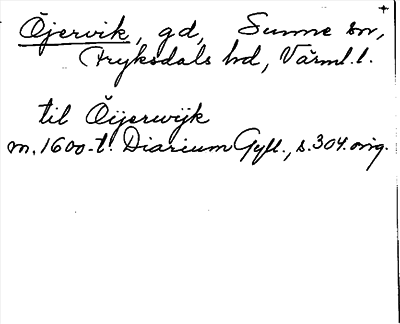 Öjervik, gd, Sunne sn,
Fryksdals hd, Värml. l.
til Öijerwijk
m. 1600-t. Diarium Gyll., s. 304. orig.